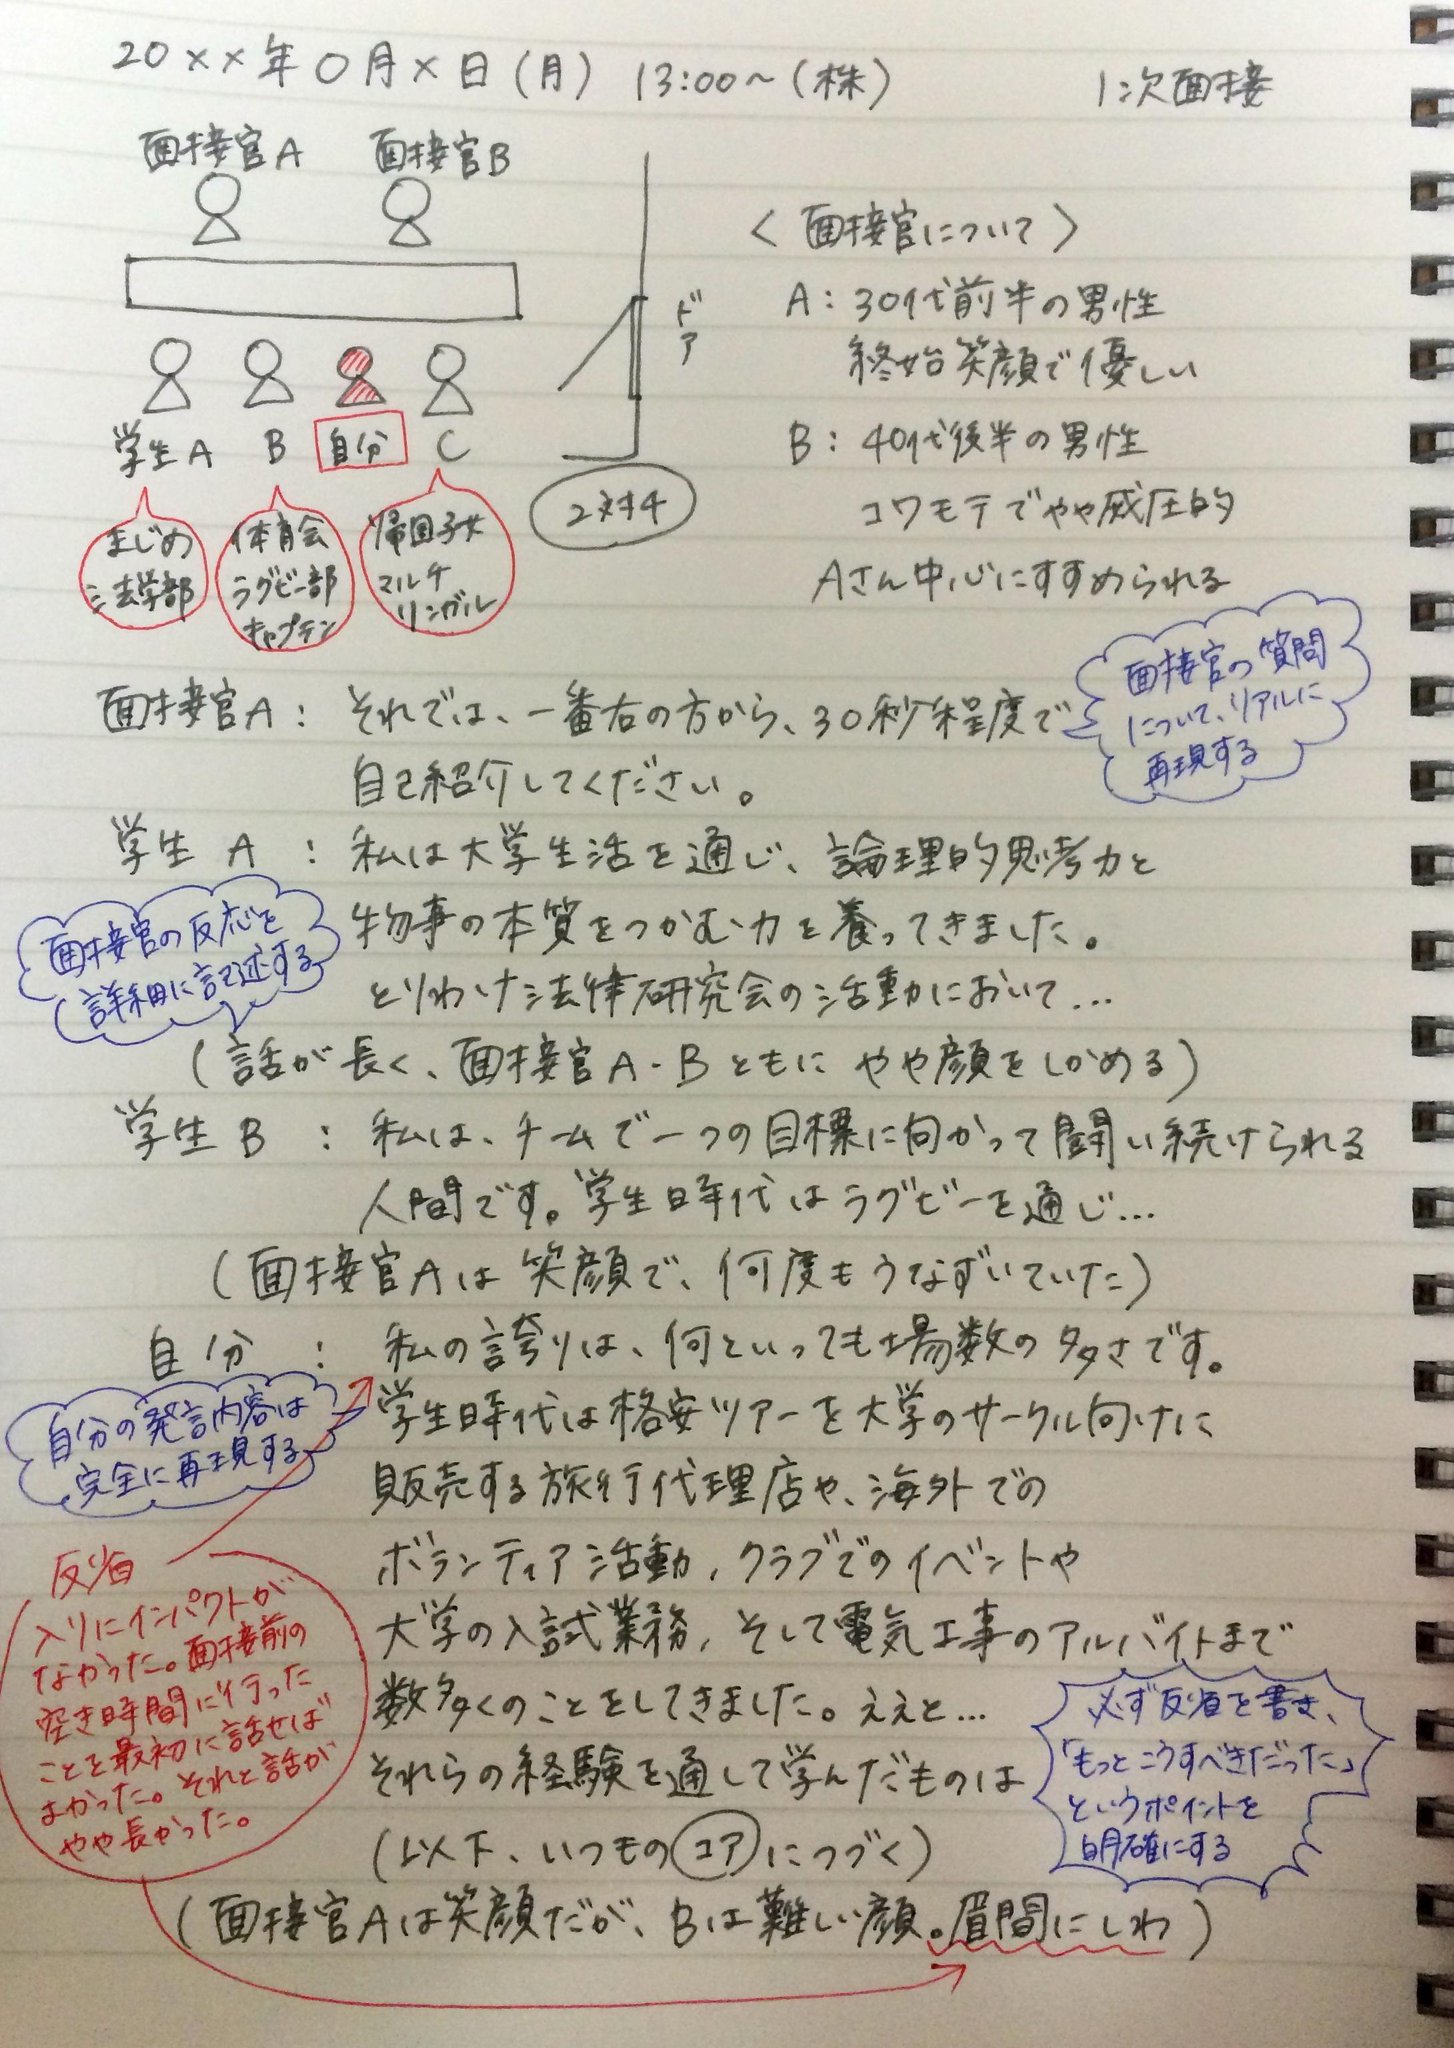 20××年0月×日(月) 13:00~(株) 1次面接
面接官A 面接官B
ドア
学生A B 自分 C
2対4
まじめ
法学部
体育会
ラグビー部
キャプテン
帰国子女
マルチ
リンガル
<面接官について>
A:30代前半の男性
終始笑顔で優しい
B:40代後半の男性
コワモテでやや威圧的
Aさん中心にすすめられる
面接官の質問
について、リアルに
再現する
面接官A: それでは、一番右の方から、30秒程度で
自己紹介してください。
学生A : 私は大学生活を通じ、論理的思考力と
物事の本質をつかむ力を養ってきました。
とりわけ法律研究会の活動において…
面接官の反応を
詳細に記述する
(話が長く、面接官A・Bともに やや顔をしかめる)
学生B : 私は、チームで一つの目標に向かって闘い続けられる
人間です。学生時代はラグビーを通じ…
(面接官Aは笑顔で、何度もうなずいていた)
自分 : 私の誇りは、何といっても場数の多さです。
学生時代は格安ツアーを大学のサークル向けに
販売する旅行代理店や、海外での
ボランティア活動,クラブでのイベントや
大学の入試業務,そして電気工事のアルバイトまで
数多くのことをしてきました。ええと…
それらの経験を通して学んだものは
(以下、いつものコアにつづく)
自分の発言内容は
完全に再現する
反省
入りにインパクトが
なかった。面接前の
空き時間に行った
ことを最初に話せば
よかった。それと話が
やや長かった。
必ず反省を書き、
「もっとこうすべきだった」
というポイントを
明確にする
(面接官Aは笑顔だが、Bは難しい顔。眉間にしわ)